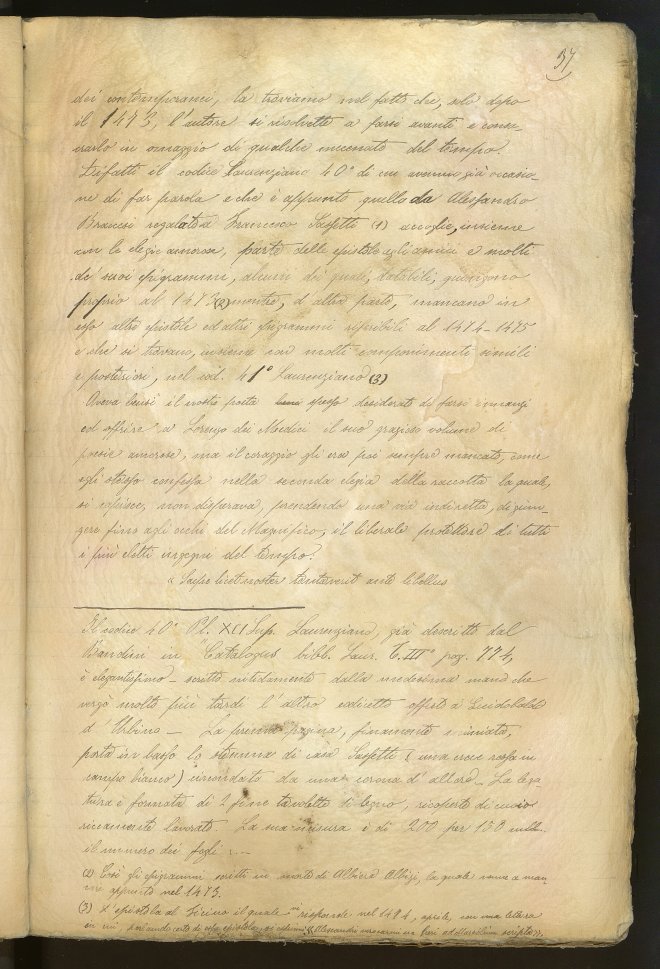 37
dei contemporanei, la troviamo nel fatto che, solo dopo
il 1473, l'autore si risolvette a farsi avanti e consa-
crarlo in omaggio di qualche mecenate del tempo.
Difatti il codice Laurenziano 40° di cui avemmo già occasio-
ne di far parola e che è appunto quello da Alessandro
Braccesi regalato a Francesco Sassetti (1) accoglie, insieme
con le elegie amorose, parte delle epistole agli amici e molti
de' suoi epigrammi, alcuni dei quali, databili, giungono
proprio al 1473 (2) mentre, d'altra parte, mancano in
esso altre epistole ed altri epigrammi riferibili al 1474-1475
e che si trovano, insieme con molti componimenti simili
e posteriori, nel cod. 41° Laurenziano (3)
Aveva bensì il nostro poeta spesso desiderato di farsi innanzi
ed offrire a Lorenzo dei Medici il suo grazioso volume di
poesie amorose, ma il coraggio gli era poi sempre mancato, come
egli stesso confessa nella seconda elegia della raccolta la quale,
si capisce, non disperava, prendendo una via indiretta, di giun-
gere fino agli occhi del Magnifico, il liberale protettore di tutti
i più eletti ingegni del tempo:
" Saepe licet noster tentaverit ante libellus
Il codice 40° Pl. XCI Sup. Laurenziano, già descritto dal
Bandini in Catalogus bibl. Laur. T. III° pag. 774,
è elegantissimo - scritto nitidamente dalla medesima mano che
vergò molto più tardi l'altro codicetto offerto a Guidobaldo
d'Urbino - La prima pagina, finamente miniata,
porta in basso lo stemma di casa Sassetti (una croce rossa in
campo bianco) circondato da una corona d'alloro - La lega-
tura è formata di 2 fine tavolette di legno, ricoperte di cuoio
riccamente lavorato. La sua misura è di 200 per 130 mill.
il numero dei fogli ...
(2) Così gli epigrammi scritti in morte di Albiera Albizi, la quale venne a man-
care appunto nel 1473.
(3) L'epistola al Ficino il quale vi rispose nel 1474, aprile, con una lettera
in cui, parlando di essa epistola,